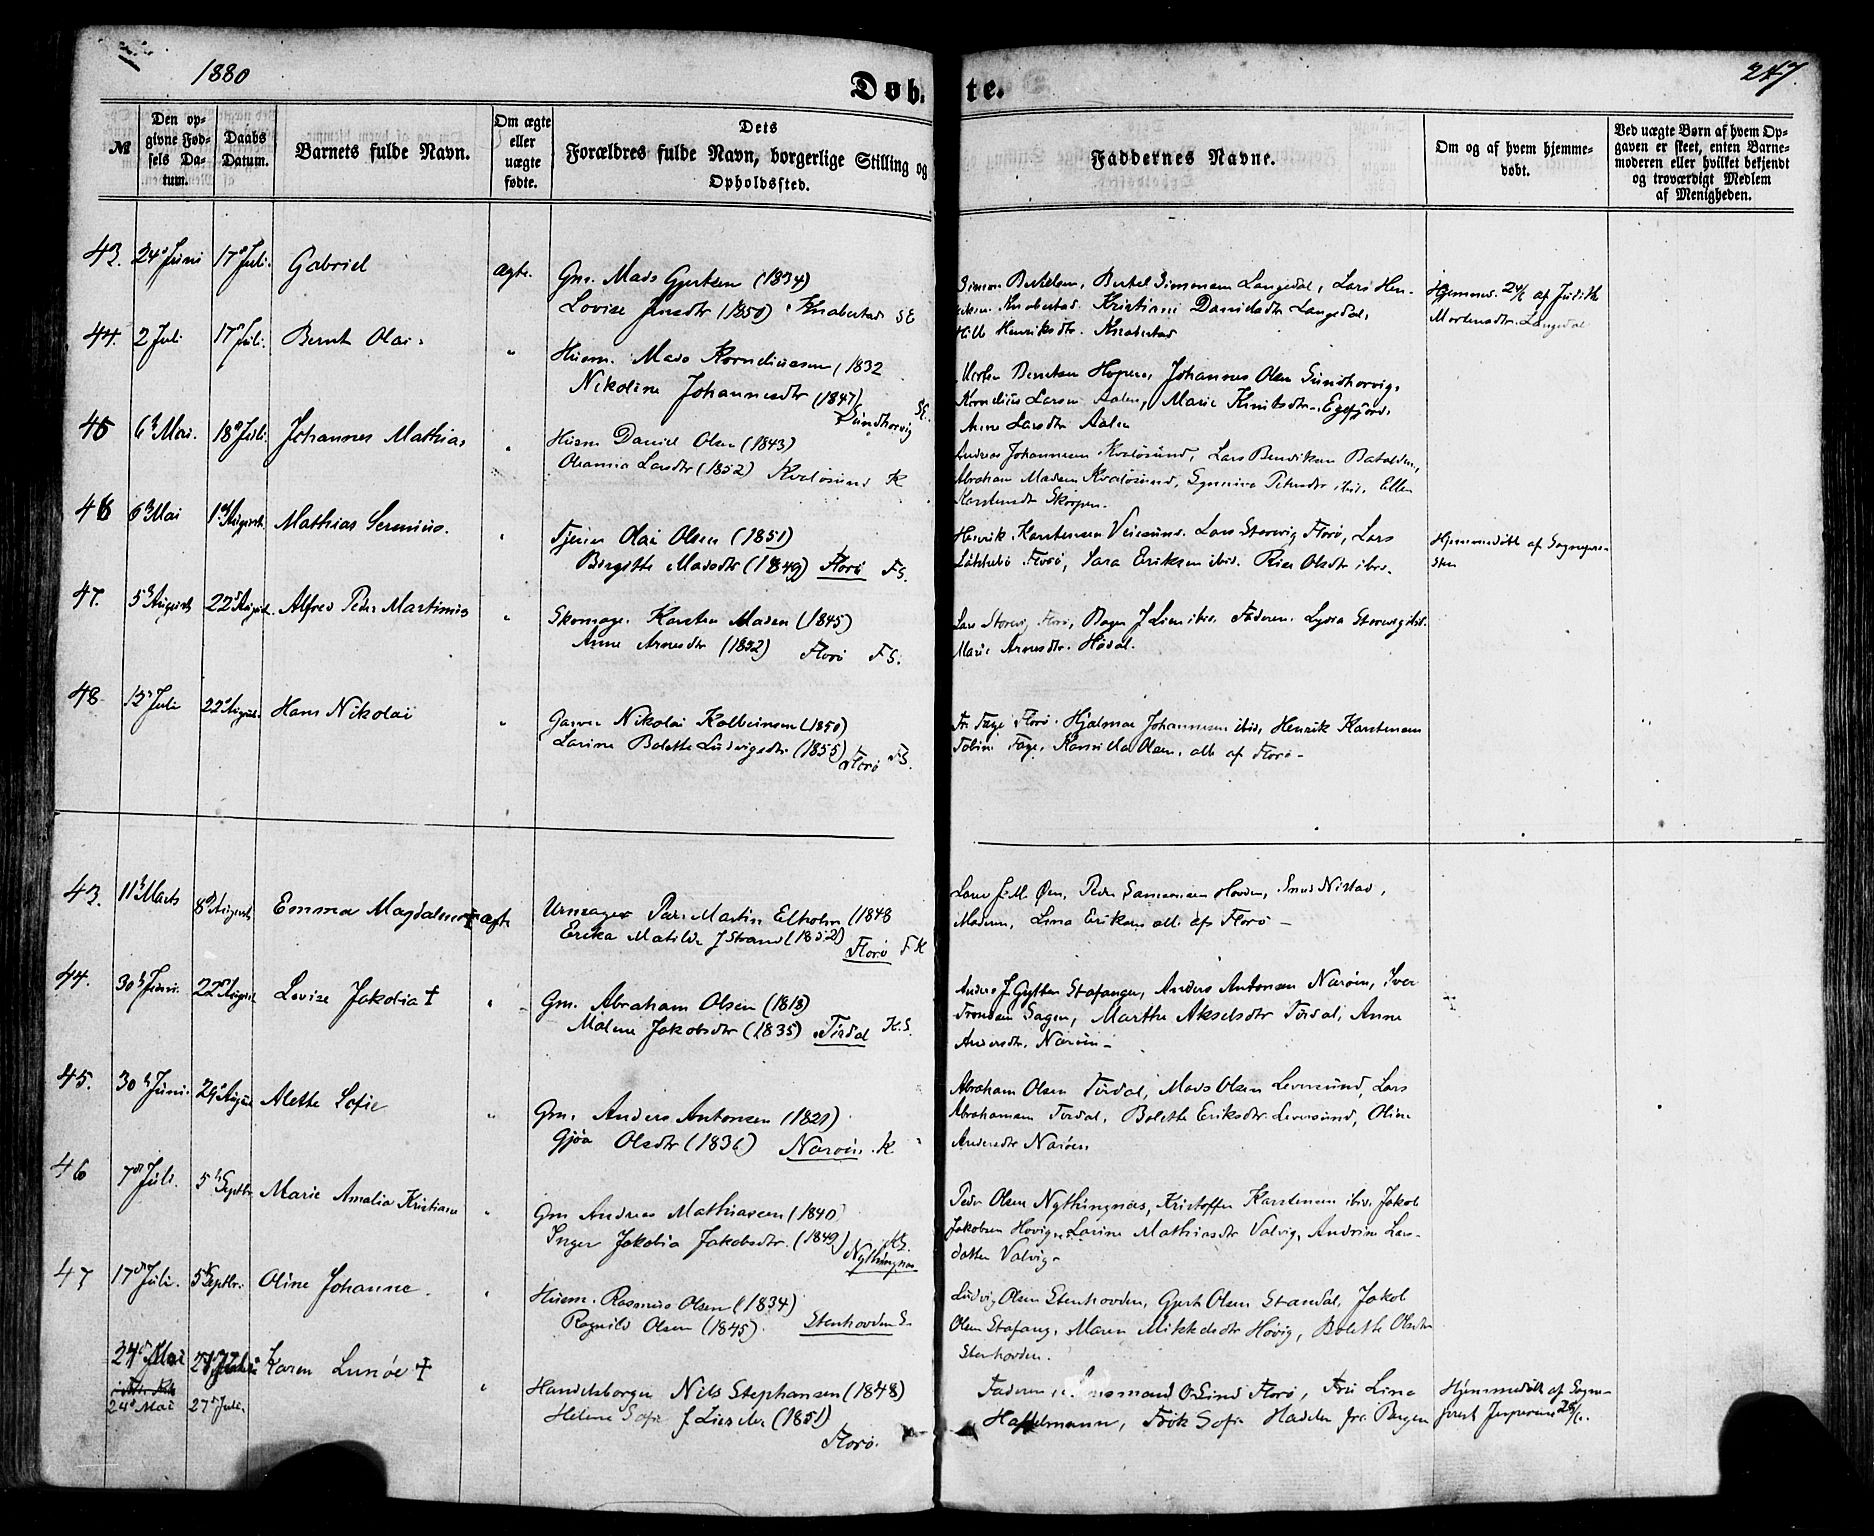 1880
Døb.
te.
247.
№
Den op-
givne Fød-
sels Da-
tum.
Daabs
Datum.
Barnets fulde Navn.
Om ægte
eller
uægte
fødte.
Dets
Forældres fulde Navn, borgerlige Stilling og
Opholdssted.
Faddernes Navne.
Om og af hvem hjemme-
døbt.
Ved uægte Børn af hvem Op-
gaven er skeet, enten Barne-
moderen eller hvilket bekjendt
og troværdigt Medlem
af Menigheden.
43. 24de Juni 17de Juli. Gabriel ægte.
Gm. Mads Gjertsen (1834)
Lovise Jensdtr (1850) Knabestad SE
Simon Bertelsen, Bertel Simonsen Langedal, Lars Hen-
riksen Knabestad. Kristiane Danielsdtr Langedal,
Henriksdtr. Knabestad
Hjemmed. 24/6 af Judith
Mortensdtr. Langedal
44. 2 Juli 17de Juli. Bernt Olai. "
Husm. Mads Korneliussen (1832
Nikoline Johannesdtr (1847)
Sundhorvig SE.
Berntsen Hopen, Johannes Olsen Sundhorvig,
Kornelius Larsen Aalen, Marie Knutsdtr. Egefjord.
Anne Larsdtr Aalen
45 6te Mai. 18de Juli. Johannes Mathias "
Husm Daniel Olsen (1843)
Oleanna Larsdtr (1852) Kvalösund K
Andreas Johannesen Kvalösund, Lars Bendiksen Batalden,
Abraham Madsen Kvalösund, Synneva Petersdtr ibid. Ellen
Karstensdtr Skorpen.
46 6te Mai 1ste August Mathias Severinus. "
Tjener Olai Olsen (1851)
Birgitte Madsdtr (1849) Florø FS.
Henrik Karstensen Veiesund. Lars Storevig Florø, Lars
Florø, Sara Eriksen ibid. Olsdtr ibid.
Hjemmedöbt af Sognepre-
sten
47. 5te August 22de August. Alfred Peder Martinus "
Skomager Karsten Madsen (1845)
Anne Arnesdtr (1852) Florø FS.
Lars Storevig Florø, Bager J Lien ibid. Faderen. Lydia Storevig ibid.
Marie Arnesdtr. Hødal.
48 12te Juli 22de August. Hans Nikolai "
Garver Nikolai Kolbeinsen (1850)
Larine Bolette Ludvigsdtr (1855) Florø FS.
Fr. Faye Florø. Hjalmar Johannesen ibid, Henrik Karstensen
Faye, Kamilla Olsen, alle af Florø -
43. 11te Marts 8de August Emma Magdalene † ægte
Urmager Martin Elholm (1848
Erika Matilde J Strand (1852)
Florø FK
Lars J. M. Øen, Peder Samsonsen Hovden, Nistad,
Moderen, Lina Eriksen alle af Florø -
44. 30te Juni. 22de August Lovise Jakobia † "
Gm. Abraham Olsen (1818)
Malene Jakobsdtr (1835) Tirdal K.S.
Anders J Gytten Stafanger, Anders Antonsen Narøen, Iver
Trondsen Sagen, Marthe Akselsdtr Tirdal, Anne
Andersdtr. Narøen -
45. 30te Juni. 29de August Alette Sofie "
Gm. Anders Antonsen (1821)
Gjøa Olsdtr (1836) Narøen K.
Abraham Olsen Tirdal, Mads Olsen Leversund, Lars
Abrahamsen Tirdal, Bolette Eriksdtr Leversund, Oline
Andersdtr Narøen
46 7de Juli. 5te Septbr Marie Amalia Kristiane "
Gm Andreas Mathiasen (1840)
Inger Jakobia Jakobsdtr. (1849) Nythingnæs
Peder Olsen Nythingnæs, Kristoffer Karstensen ibid. Jakob
Jakobsen Høvig, Larine Mathiasdtr Valvig, Andrine Lars-
datter Valvig -
47 17de Juli. 5te Septbr. Oline Johanne. "
Husm. Rasmus Olsen (1834)
Ragnild Olsen (1845) Stenhovden S.
Ludvig Olsen Stenhovden, Gjert Olsen Standal, Jakob
Olsen Stafang, Maren Mikkelsdtr Høvig, Bolette Olsdtr
Stenhovden.
24de Mai Karen Lunøe † "
24de Mai 27de Juli.
Handelsborger Nils Stephansen (1848)
Helene Sofie f. (1851)
Florø.
Faderen, O. Sind Florø, Fru Lina
Hasselmann, Frøk Sofie fra Bergen
Hjemmedöbt af Sogne-
prest